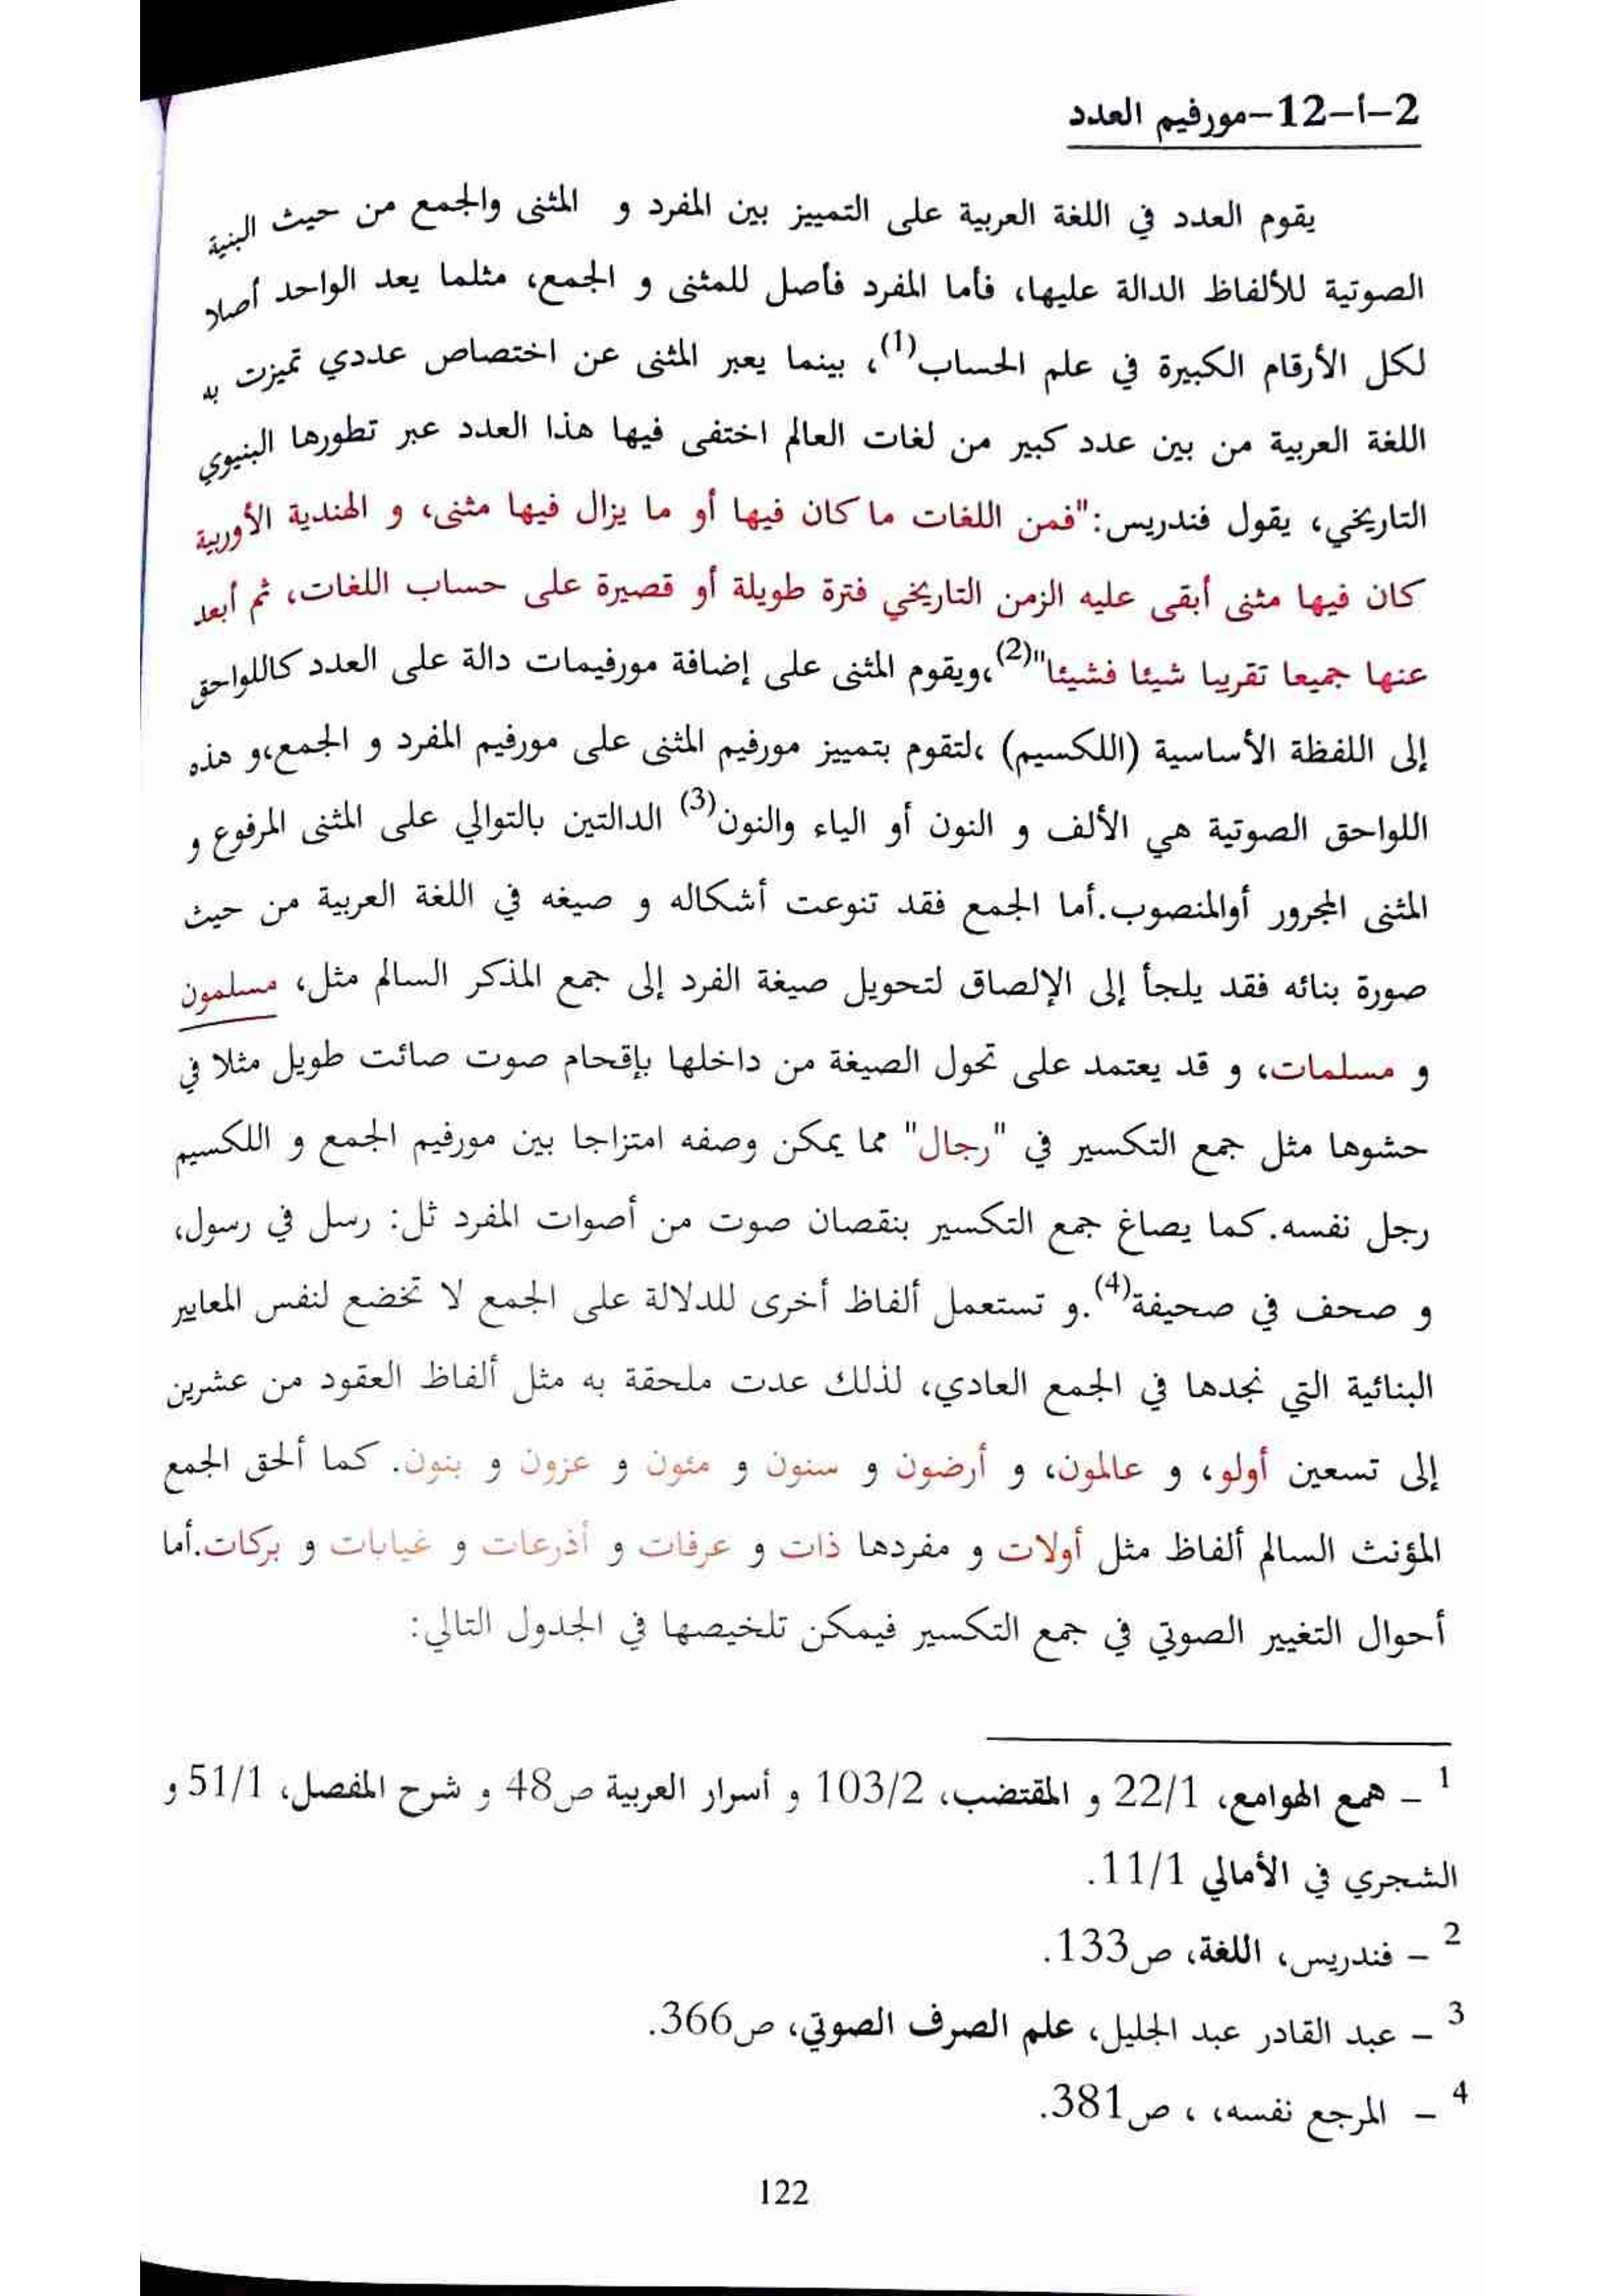 2-أ-12-مورفيم العدد
يقوم العدد في اللغة العربية على التمييز بين المفرد و المثنى والجمع من حيث البنية
الصوتية للألفاظ الدالة عليها، فأما المفرد فأصل للمثنى و الجمع، مثلما يعد الواحد أصلا
لكل الأرقام الكبيرة في علم الحساب(1)، بينما يعبر المثنى عن اختصاص عددي تميزت به
اللغة العربية من بين عدد كبير من لغات العالم اختفى فيها هذا العدد عبر تطورها البنيوي
التاريخي، يقول فندريس:"فمن اللغات ما كان فيها أو ما يزال فيها مثنى، و الهندية الأوربية
كان فيها مثنى أبقى عليه الزمن التاريخي فترة طويلة أو قصيرة على حساب اللغات، ثم أبعد
عنها جميعا تقريبا شيئا فشيئا"(2)،ويقوم المثنى على إضافة مورفيمات دالة على العدد كاللواحق
إلى اللفظة الأساسية (اللكسيم) ،لتقوم بتمييز مورفيم المثنى على مورفيم المفرد و الجمع،و هذه
اللواحق الصوتية هي الألف و النون أو الياء والنون(3) الدالتين بالتوالي على المثنى المرفوع و
المثنى المجرور أوالمنصوب.أما الجمع فقد تنوعت أشكاله و صيغه في اللغة العربية من حيث
صورة بنائه فقد يلجأ إلى الإلصاق لتحويل صيغة الفرد إلى جمع المذكر السالم مثل، مسلمون
و مسلمات، و قد يعتمد على تحول الصيغة من داخلها بإقحام صوت صائت طويل مثلا في
حشوها مثل جمع التكسير في "رجال" مما يمكن وصفه امتزاجا بين مورفيم الجمع و اللكسيم
رجل نفسه.كما يصاغ جمع التكسير بنقصان صوت من أصوات المفرد ثل: رسل في رسول،
و صحف في صحيفة(4).و تستعمل ألفاظ أخرى للدلالة على الجمع لا تخضع لنفس المعايير
البنائية التي نجدها في الجمع العادي، لذلك عدت ملحقة به مثل ألفاظ العقود من عشرين
إلى تسعين أولو، و عالمون، و أرضون و سنون و مئون و عزون و بنون. كما ألحق الجمع
المؤنث السالم ألفاظ مثل أولات و مفردها ذات و عرفات و أذرعات و غيابات و بركات.أما
أحوال التغيير الصوتي في جمع التكسير فيمكن تلخيصها في الجدول التالي:
1 – همع الهوامع، 22/1 و المقتضب، 103/2 و أسرار العربية ص48 و شرح المفصل، 51/1 و
الشجري في الأمالي 11/1.
2 – فندريس، اللغة، ص133.
3 – عبد القادر عبد الجليل، علم الصرف الصوتي، ص366.
4 – المرجع نفسه، ، ص381.
122